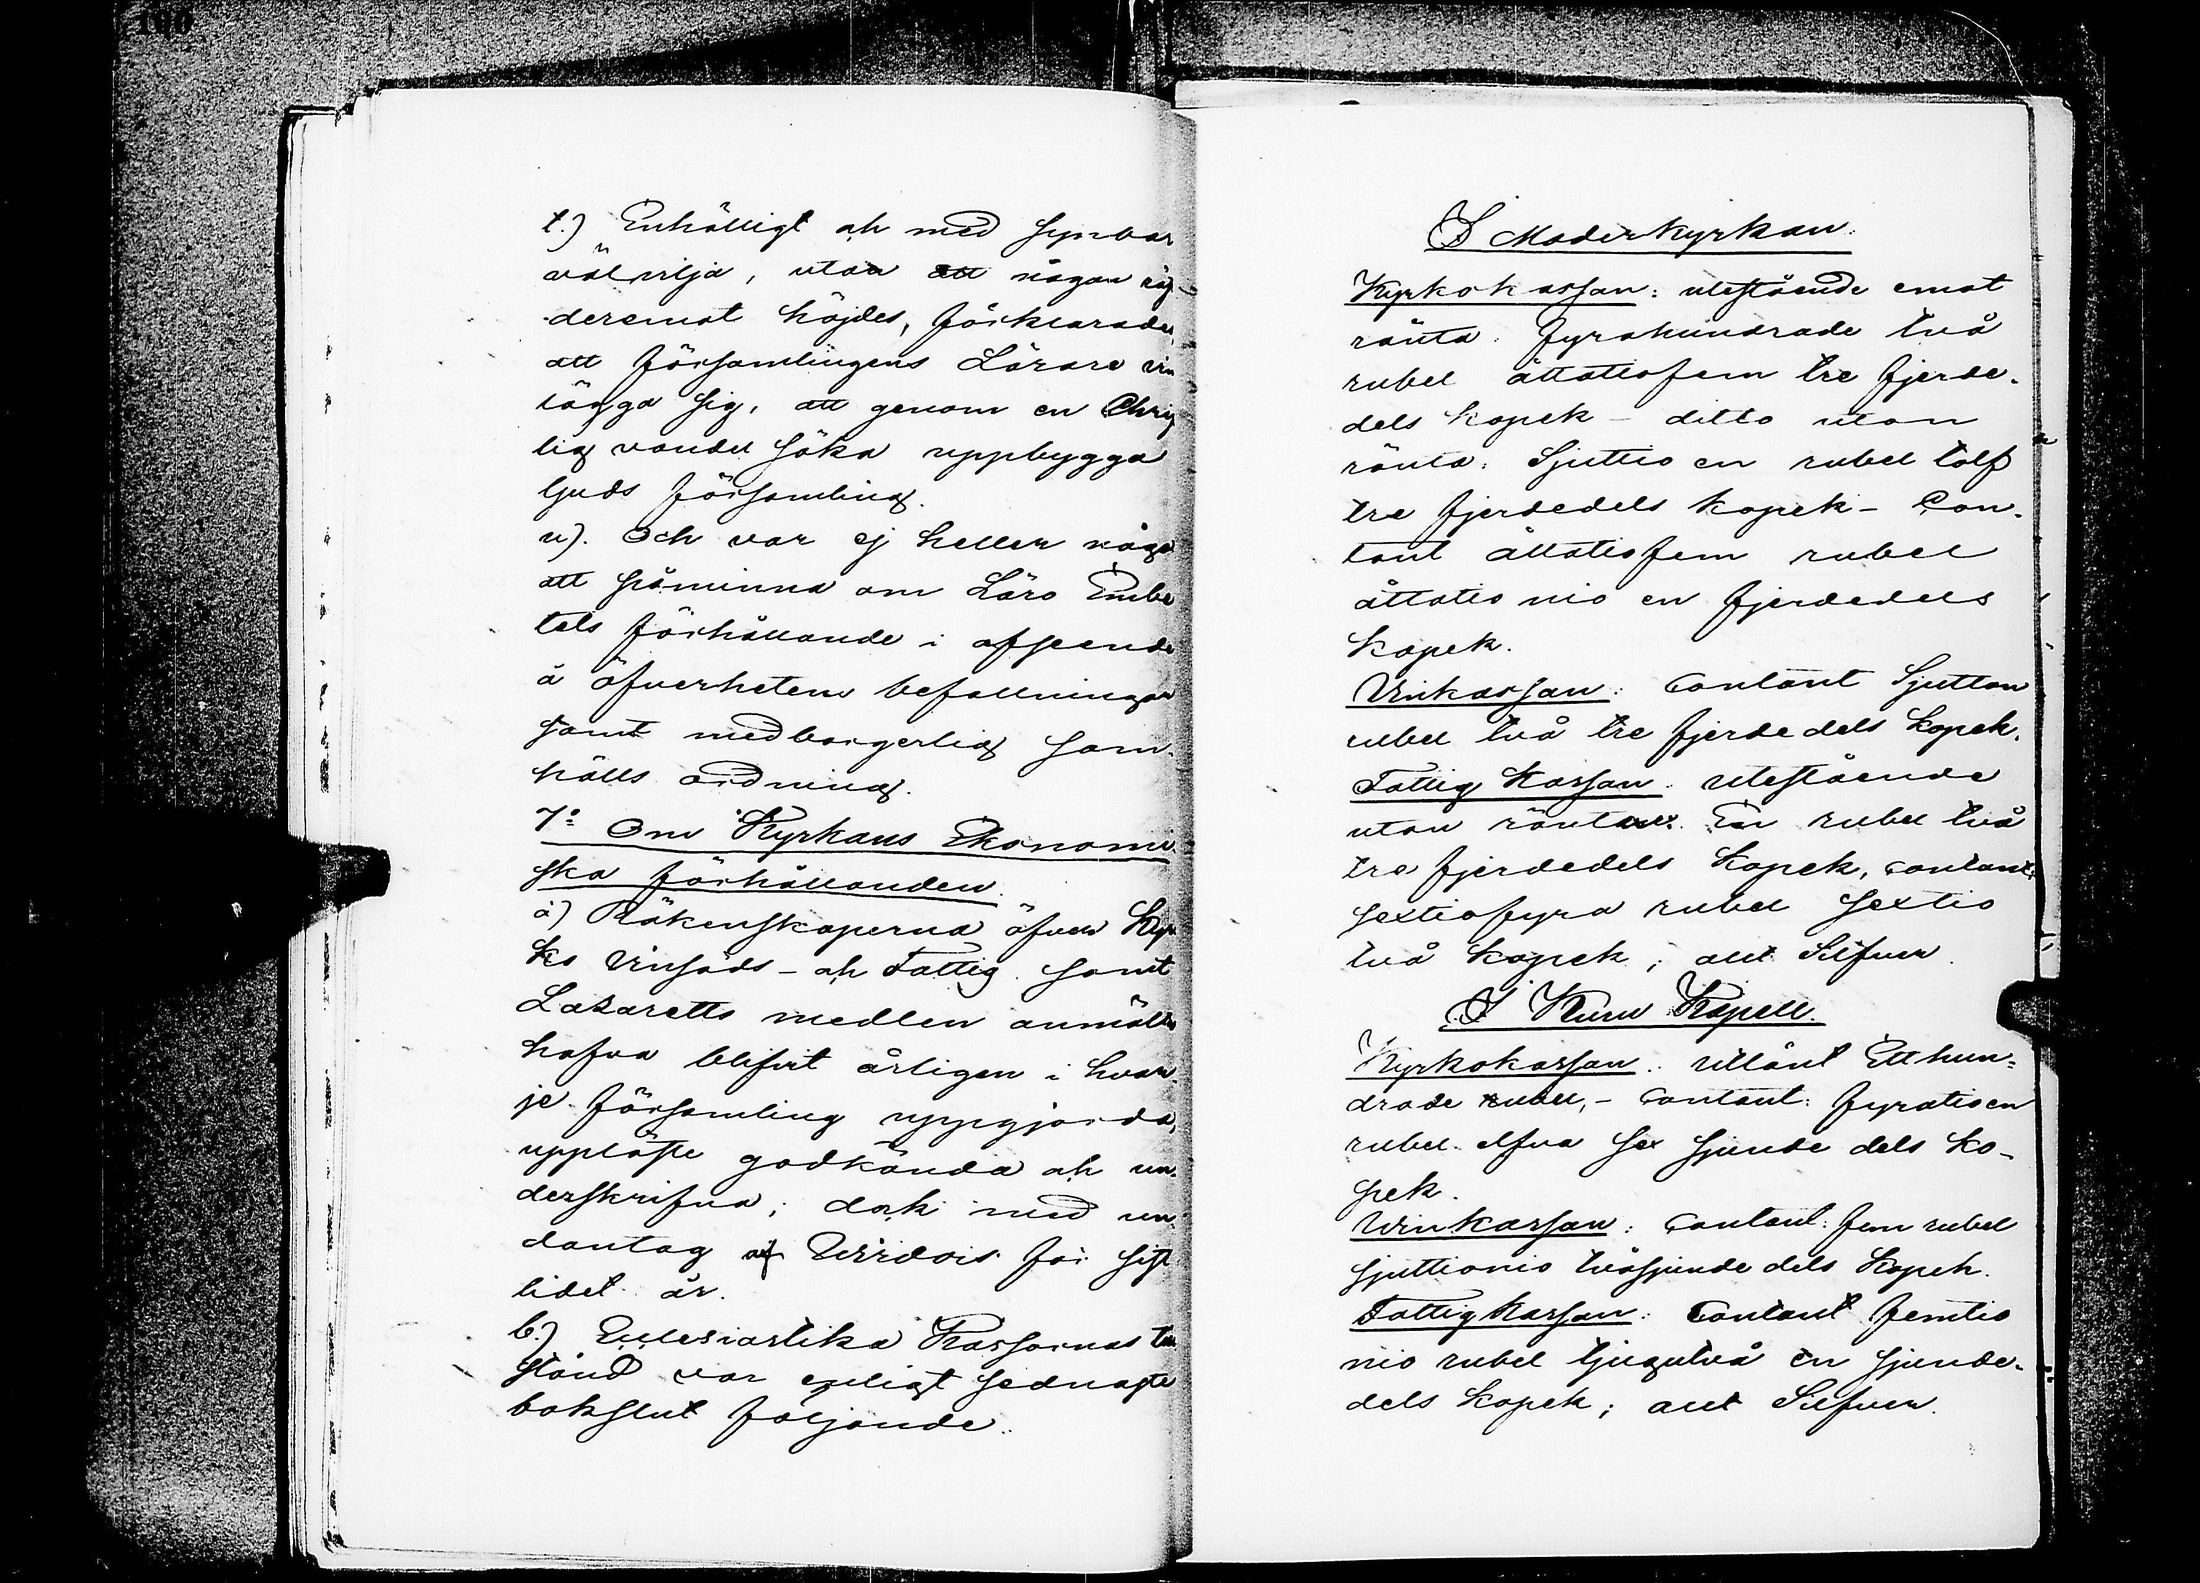 t.) Enhälligt och med synbar
välvilja, utan att någon röst
deremot höjdes, förklarades,
att församlingens Lärare vin
lägga sig, att genom en Chris
lig vandel söka uppbygga
Guds församling.
u). Och var ej heller någo
att påminna om Läro Embe
tets förhållande i afseende
å öfverhetens befallningar
samt medborgerlig sam-
hälls ordning.
7:o Om Kyrkans Ekonomi-
ska förhållanden.
a) Räkenskaperna öfver Kyr
ko Vinsäds- och Fattig- samt
Lazaretts medlen anmältes
hafva blifvit årligen i hvar-
je församling uppgjorda,
uppläste godkända och un-
derskrifna; dock med un-
dantag af Virdois för sist
lidet år.
b.) Ecclesiastika Kassornas till
stånd var enligt sednaste
bokslut följande.
I Moderkyrkan.
Kyrkokassan: utestående emot
ränta. Fyrahundrade två
rubel åttatiofem tre fjerde-
dels kopek - ditto utan
ränta: Sjuttio en rubel tolf
tre fjerdedels kopek - Con-
tant åttatiofem rubel
åttatio nio en fjerdedels
kopek.
Vinkassan: Contant Sjutton
rubel två tre fjerdedels kopek.
Fattig Kassan: utestående
utan ränta: En rubel två
tre fjerdedels kopek, contant:
sextiofyra rubel sextio
två kopek; allt Silfver.
I Kuru Kapell.
Kyrkokassan: utlånt Ett hun-
drade rubel, - Contant: fyratioen
rubel elfva sex sjunde dels ko-
pek.
Vinkassan: Contant: fem rubel
sjuttionio tvåsjunde dels kopek.
Fattig Kassan: Contant femtio
nio rubel tjugutvå en sjunde-
dels kopek; allt Silfver.